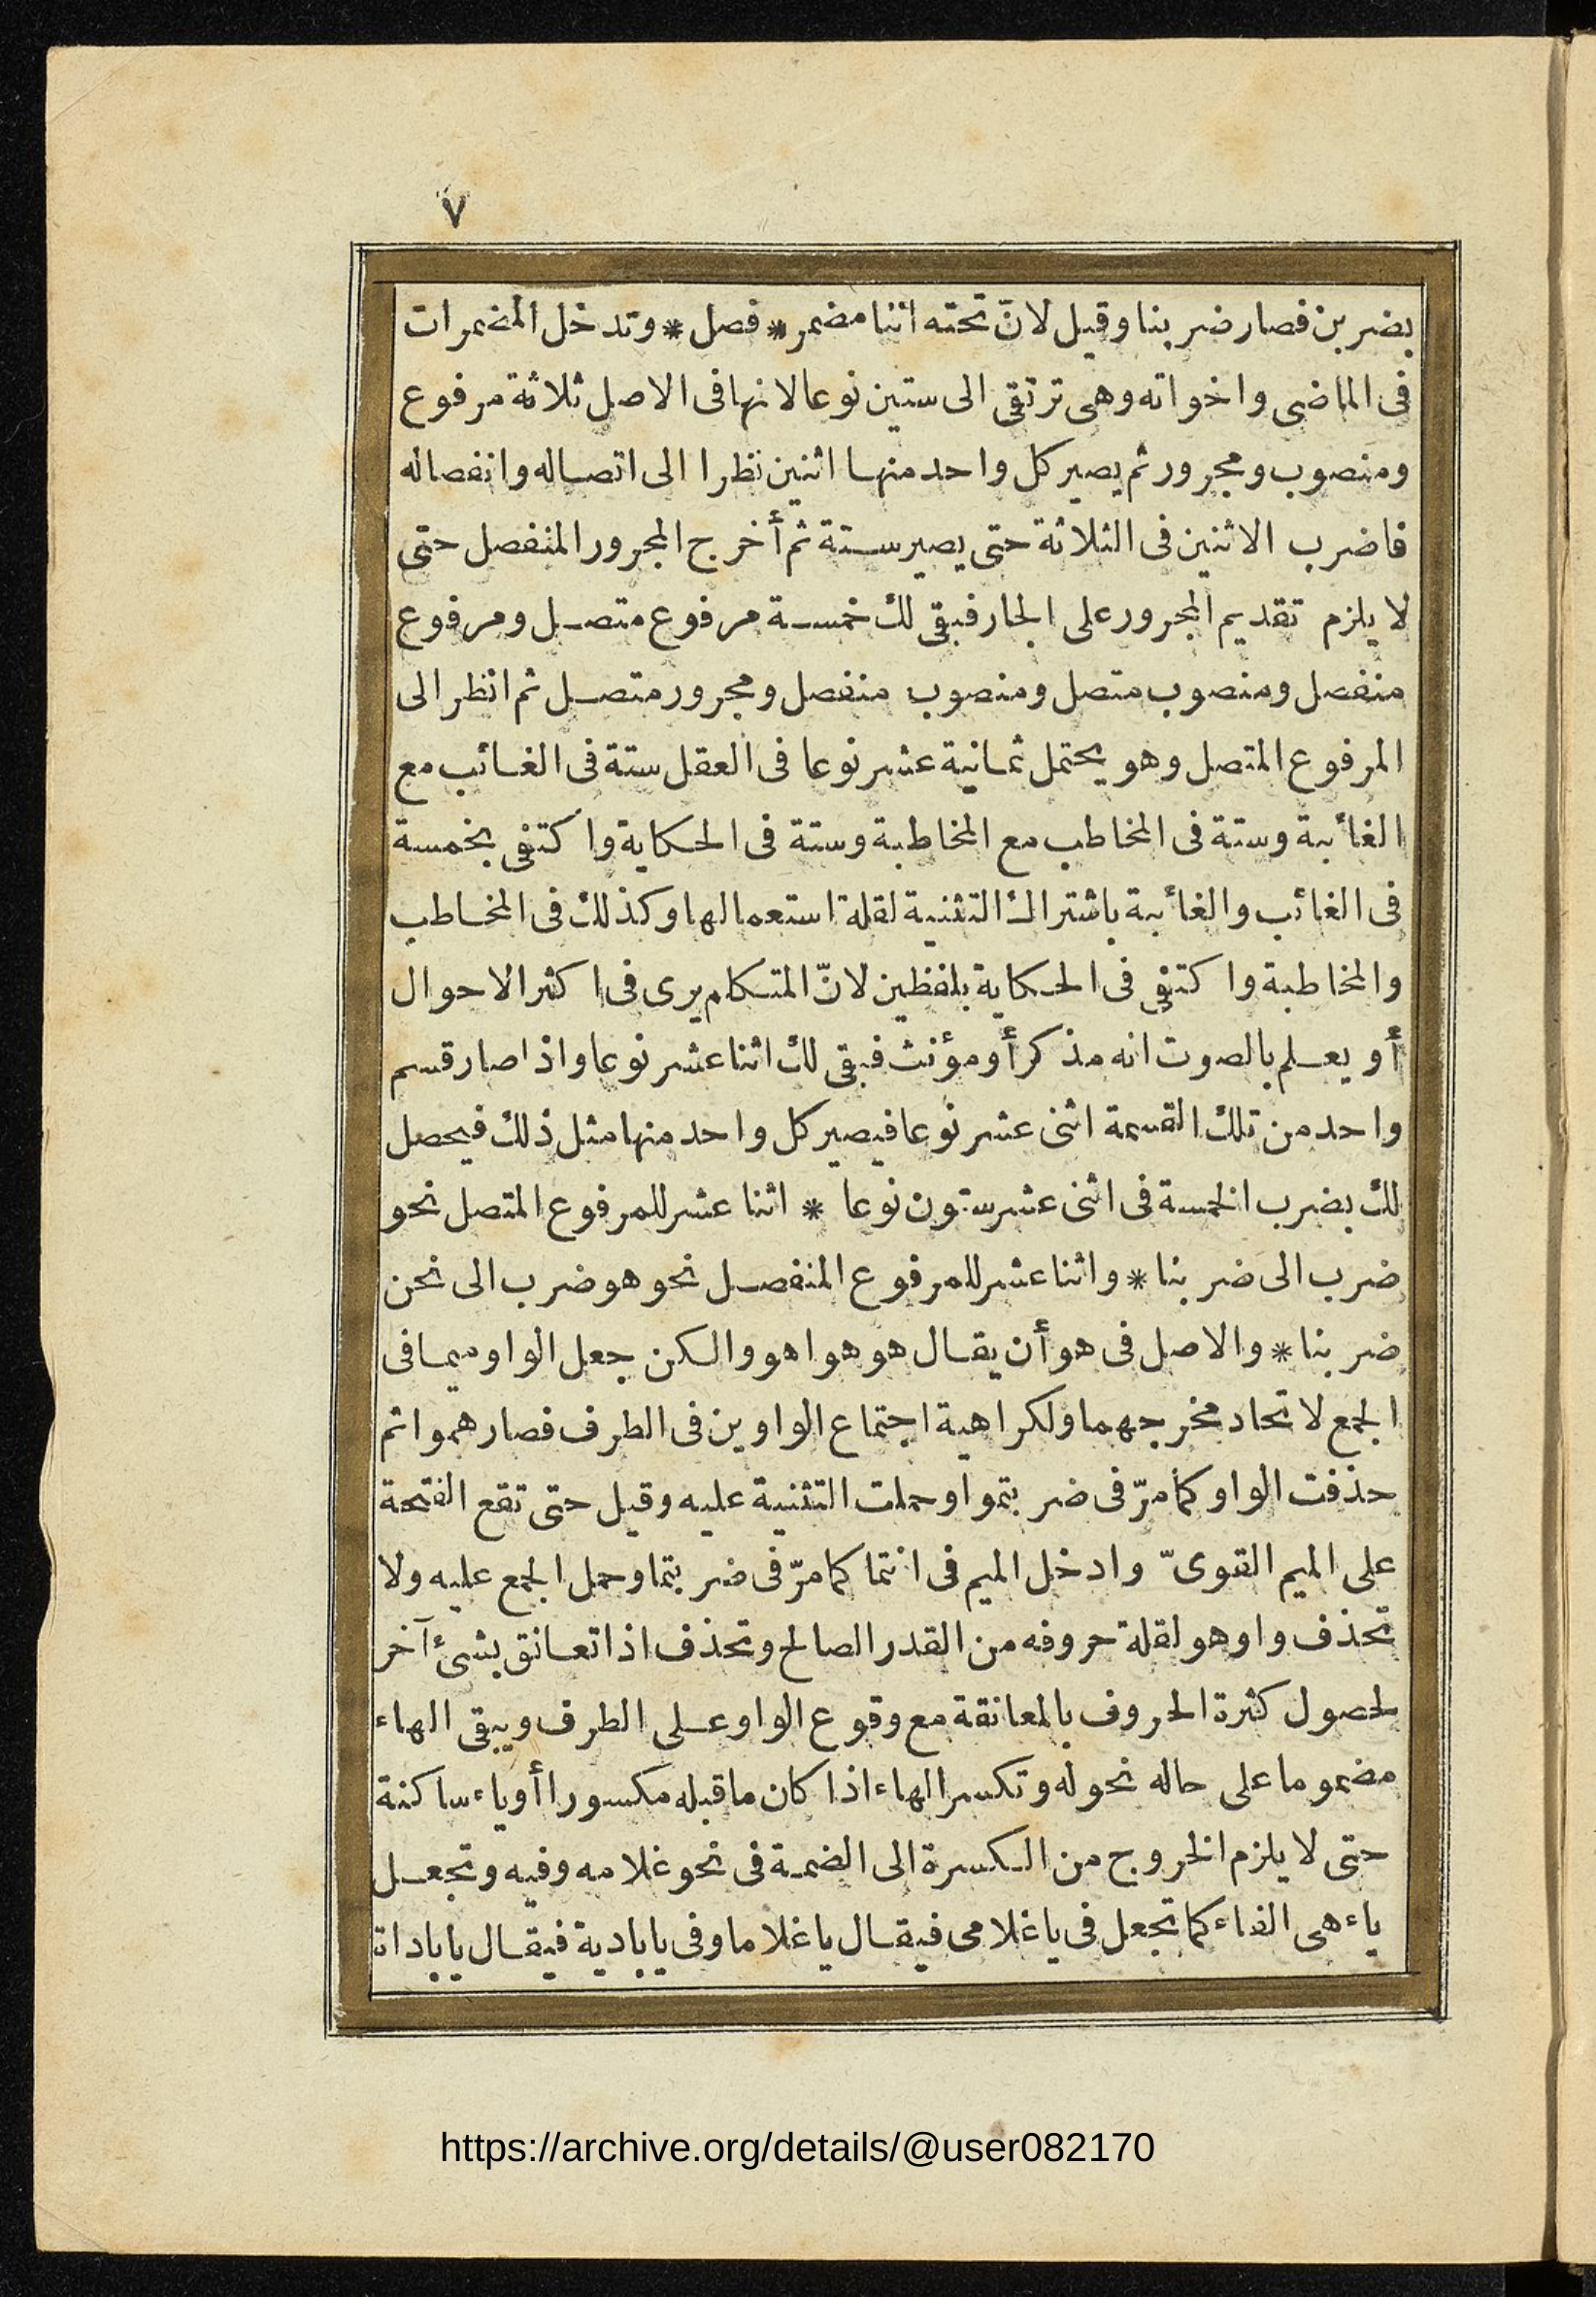 ٧
بضربن فصار ضربنا وقيل لانّ تحته اننا مضمر * فصل * وتدخل المضمرات
فى الماضى واخواته وهى ترتقى الى ستين نوعا لانها فى الاصل ثلاثة مرفوع
ومنصوب ومجرور ثم يصير كل واحد منها اثنين نظرا الى اتصاله وانفصاله
فاضرب الاثنين فى الثلاثة حتى يصير ستة ثم أخرج المجرور المنفصل حتى
لا يلزم تقديم المجرور على الجار فبقى لك خمسة مرفوع متصل ومرفوع
منفصل ومنصوب متصل ومنصوب منفصل ومجرور متصل ثم انظر الى
المرفوع المتصل وهو يحتمل ثمانية عشر نوعا فى العقل ستة فى الغائب مع
الغائبة وستة فى المخاطب مع المخاطبة وستة فى الحكاية واكتفى بخمسة
فى الغائب والغائبة باشتراك التثنية لقلة استعمالها وكذلك فى المخاطب
والمخاطبة واكتفى فى الحكاية بلفظين لانّ المتكلم يرى فى اكثر الاحوال
أو يعلم بالصوت انه مذكر أو مؤنث فبقى لك اثنا عشر نوعا واذا صار قسم
واحد من تلك القسمة اثنى عشر نوعا فيصير كل واحد منها مثل ذلك فيحصل
لك بضرب الخمسة فى اثنى عشر ستون نوعا * اثنا عشر للمرفوع المتصل نحو
ضرب الى ضربنا * واثنا عشر للمرفوع المنفصل نحو هو ضرب الى نحن
ضربنا * والاصل فى هو أن يقال هو هوا هوو الكن جعل الواو ميما فى
الجمع لاتحاد مخرجهما ولكراهية اجتماع الواوين فى الطرف فصار هموا ثم
حذفت الواو كما مرّ فى ضربتموا وحملت التثنية عليه وقيل حتى تقع الفتحة
على الميم القوىّ وادخل الميم فى انتما كما مرّ فى ضربتما وحمل الجمع عليه ولا
تحذف واو هو لقلة حروفه من القدر الصالح وتحذف اذا تعانق بشئ آخر
لحصول كثرة الحروف بالمعانقة مع وقوع الواو على الطرف ويبقى الهاء
مضموما على حاله نحو له وتكسر الهاء اذا كان ما قبله مكسورا أو ياء ساكنة
حتى لا يلزم الخروج من الكسرة الى الضمة فى نحو غلامه وفيه وتجعل
ياء هى الفاء كما تجعل فى يا غلامى فيقال يا غلاما وفى يا بادية فيقال يا باداة
https://archive.org/details/@user082170